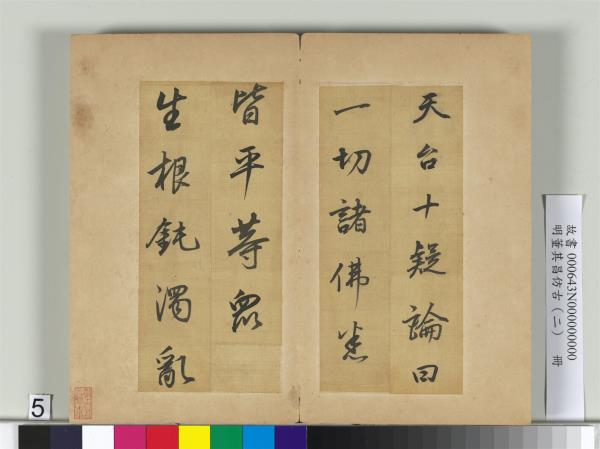 天台十疑論曰
一切諸佛悉
皆平等眾
生根鈍濁亂
故書 000643N000000000
明董其昌仿古（二） 冊
5